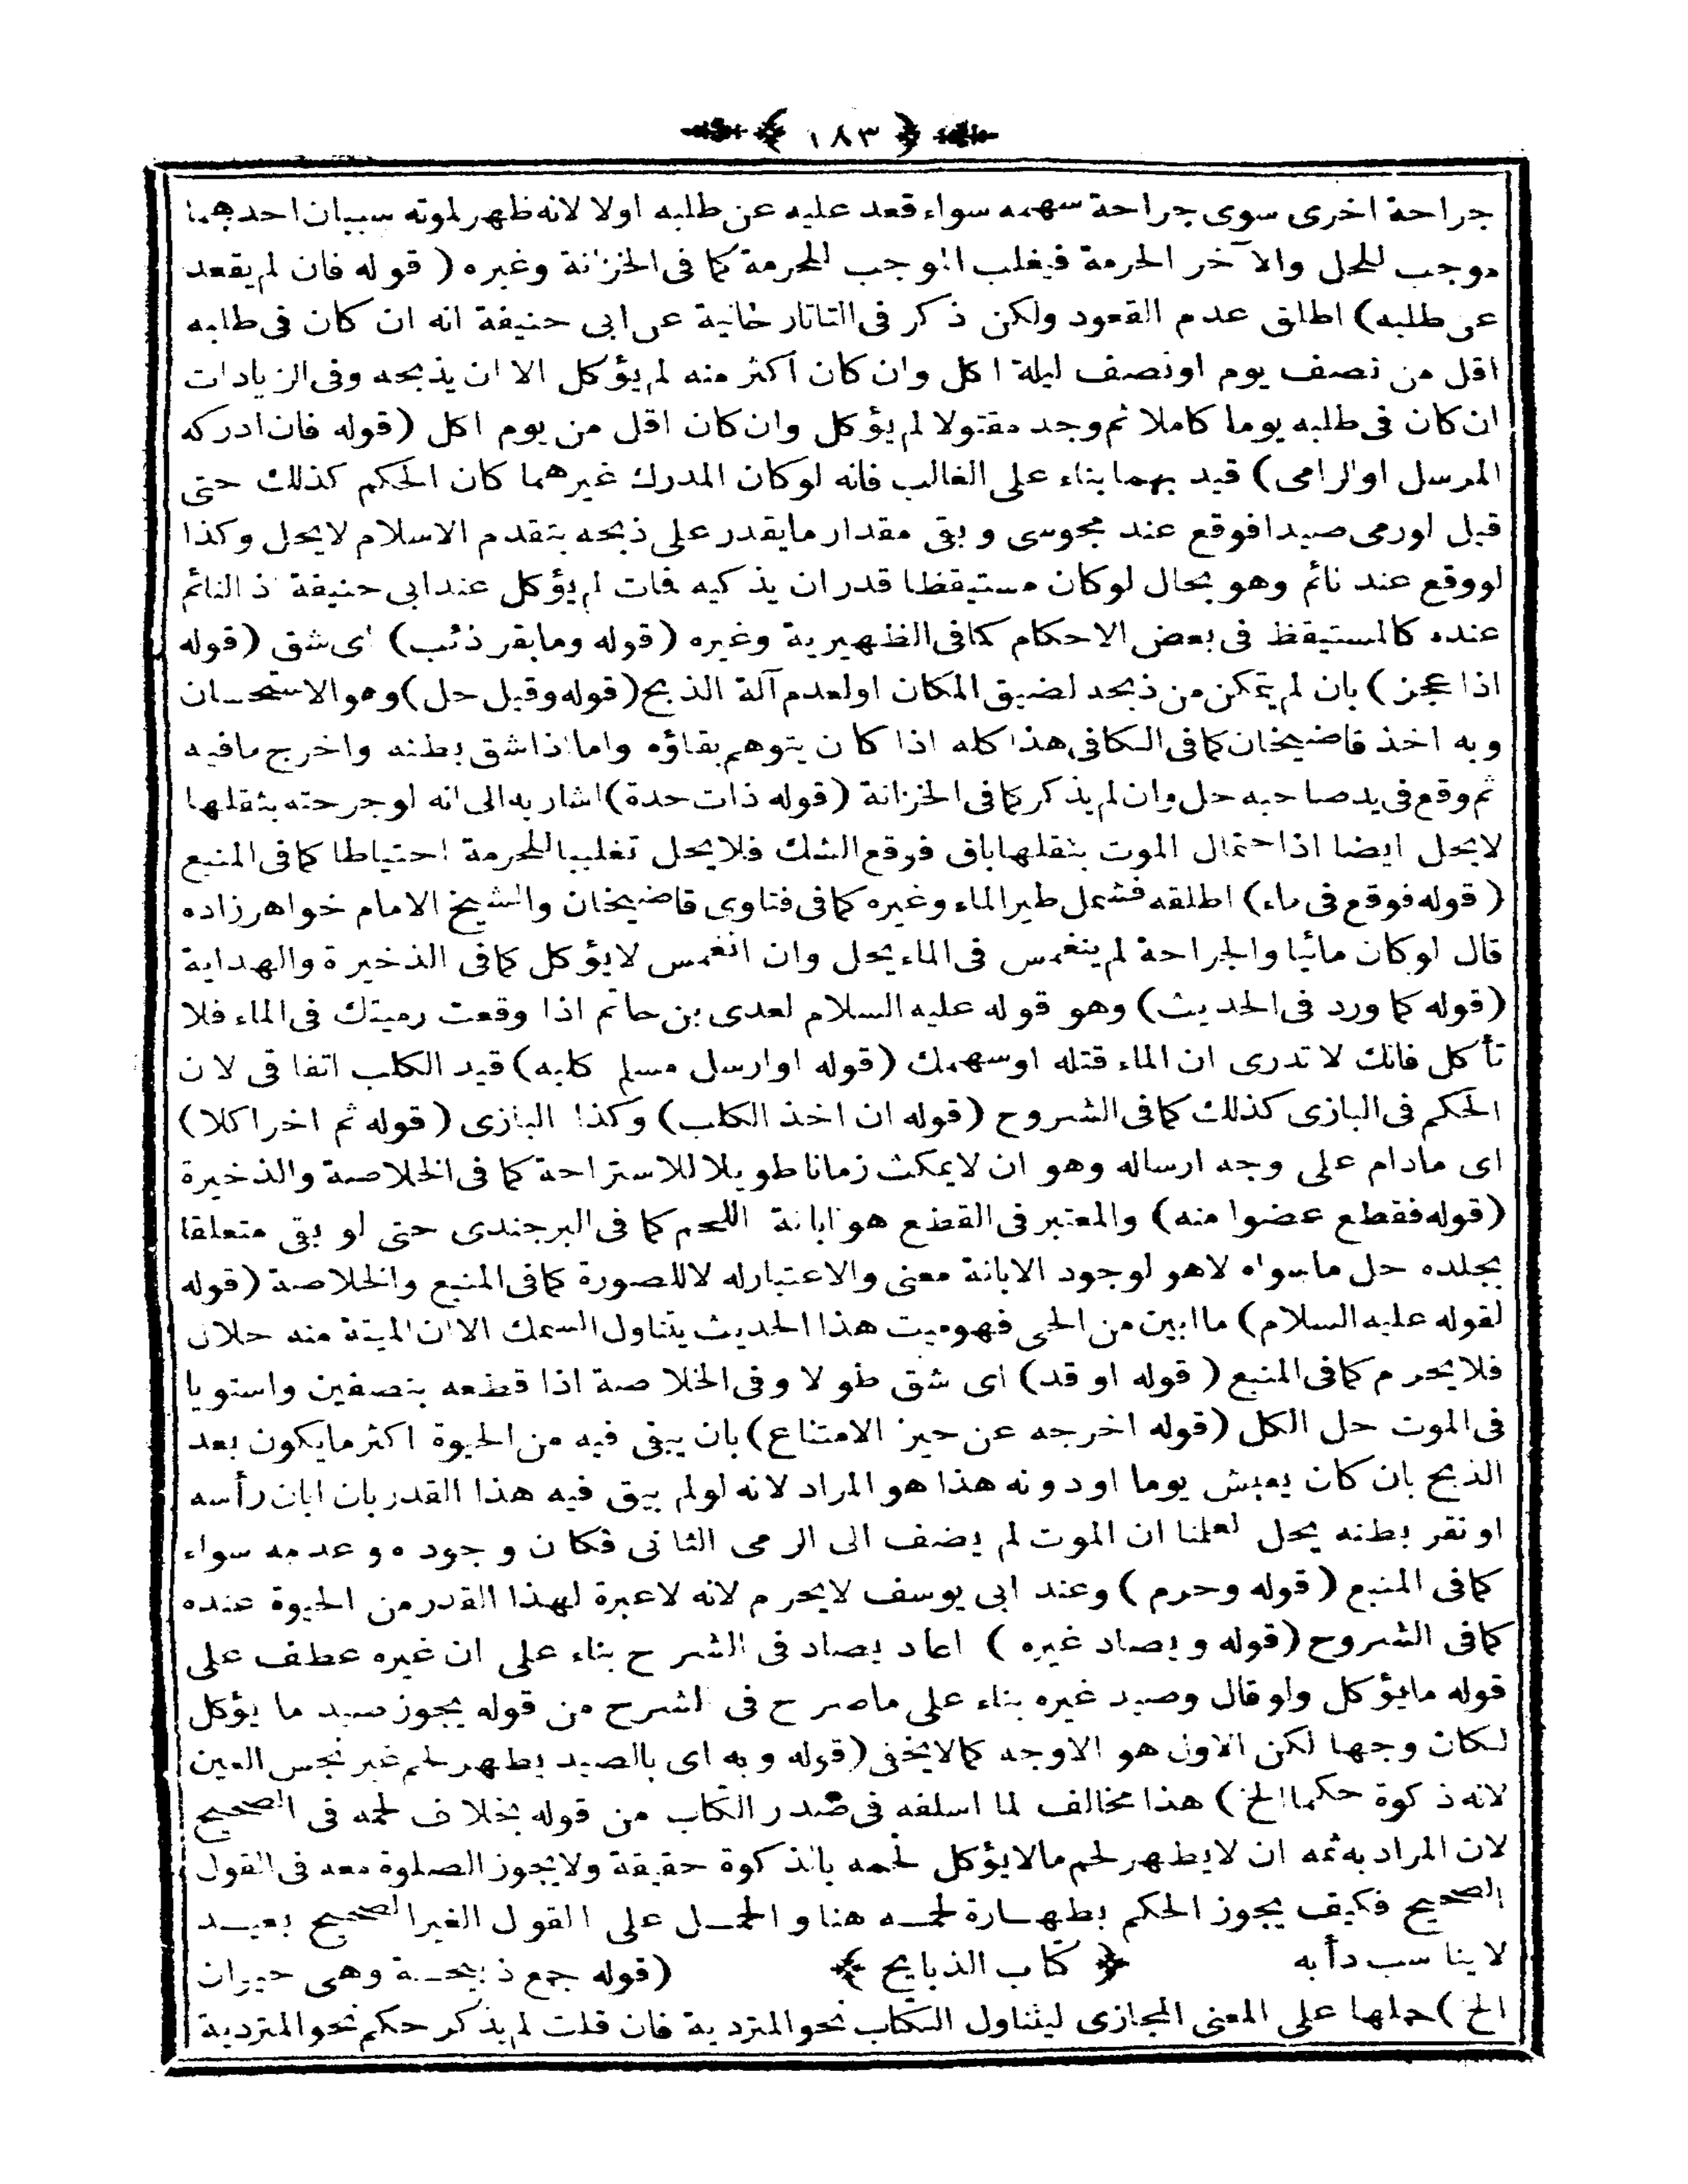 ﴿ ١٨٣ ﴾
جراحة اخرى سوى جراحة سهمه سواء قعد عليه عن طلبه اولا لانه ظهر لموته سببان احدهما
موجب للحل والآخر الحرمة فيغلب الموجب للحرمة كما فى الخزانة وغيره ( قوله فان لم يقعد
عن طلبه) اطلق عدم القعود ولكن ذكر فى التاتارخانية عن ابى حنيفة انه ان كان فى طلبه
اقل من نصف يوم اونصف ليلة اكل وان كان اكثر منه لم يؤكل الا ان يذبحه وفى الزيادات
ان كان فى طلبه يوما كاملا ثم وجد مقتولا لم يؤكل وان كان اقل من يوم اكل (قوله فان ادركه
المرسل اوالرامى) قيد بهما بناء على الغالب فانه لوكان المدرك غيرهما كان الحكم كذلك حتى
قيل لورمى صيدا فوقع عند مجوسى وبقى مقدار مايقدر على ذبحه بتقدم الاسلام لايحل وكذا
لووقع عند نائم وهو بحال لوكان مستيقظا قدر ان يذكيه فات لم يؤكل عند ابى حنيفة اذ النائم
عنده كالمستيقظ فى بعض الاحكام كمافى الظهيرية وغيره (قوله ومابقر ذئب) اى شق (قوله
اذا عجز) بان لم يتمكن من ذبحه لضيق المكان اولعدم آلة الذبح (قوله وقيل حل) وهو الاستحسان
وبه اخذ قاضيخان كمافى الكافى هذا كله اذا كان يتوهم بقاؤه واما اذا شق بطنه واخرج مافيه
ثم وقع فى يد صاحبه حل وان لم يذكر كمافى الخزانة (قوله ذات حدة) اشار به الى انه لو جرحته بثقلها
لايحل ايضا اذا حتمال الموت بثقلها باق فوقع الشك فلا يحل تغليبا للحرمة احتياطا كمافى المنبع
(قوله فوقع فى ماء) اطلقه فشمل طير الماء وغيره كمافى فتاوى قاضيخان والشيخ الامام خواهرزاده
قال لوكان مائيا والجراحة لم ينغمس فى الماء يحل وان انغمس لايؤكل كمافى الذخيرة والهداية
(قوله كما ورد فى الحديث) وهو قوله عليه السلام لعدى بن حاتم اذا وقعت رميتك فى الماء فلا
تأكل فانك لا تدرى ان الماء قتله اوسهمك (قوله اوارسل مسلم كلبه) قيد الكلب اتفاقى لان
الحكم فى البازى كذلك كمافى الشروح (قوله ان اخذ الكلب) وكذا البازى (قوله ثم اخر اكلا)
اى مادام على وجه ارساله وهو ان لايمكث زمانا طويلا للاستراحة كما فى الخلاصة والذخيرة
(قوله فقطع عضوا منه) والمعتبر فى القطع هو ابانة اللحم كما فى البرجندى حتى لو بقى متعلقا
بجلده حل ماسواه لاهو لوجود الابانة معنى والاعتبارله لاللصورة كمافى المنبع والخلاصة (قوله
لقوله عليه السلام) ماابين من الحى فهوميت هذا الحديث يتناول السمك الا ان الميتة منه حلال
فلا يحرم كمافى المنبع (قوله او قد) اى شق طولا وفى الخلاصة اذا قطعه بنصفين واستويا
فى الموت حل الكل (قوله اخرجه عن حيز الامتناع) بان يبقى فيه من الحيوة اكثر مايكون بعد
الذبح بان كان يعيش يوما اودونه هذا هو المراد لانه لولم يبق فيه هذا القدر بان ابان رأسه
او نقر بطنه يحل لعلمنا ان الموت لم يضف الى الرمى الثانى فكان وجوده وعدمه سواء
كمافى المنبع (قوله وحرم) وعند ابى يوسف لايحرم لانه لاعبرة لهذا القدر من الحيوة عنده
كمافى الشروح (قوله ويصاد غيره ) اعاد يصاد فى الشرح بناء على ان غيره عطف على
قوله مايؤكل ولو قال وصيد غيره بناء على ماصرح فى الشرح من قوله يجوز صيد ما يؤكل
لكان وجها لكن الاول هو الاوجه كمالايخفى (قوله وبه اى بالصيد يطهر لحم غير نجس العين
لانه ذكوة حكما الخ) هذا مخالف لما اسلفه فى صدر الكتاب من قوله بخلاف لحمه فى الصحيح
لان المراد به ثمه ان لايطهر لحم مالايؤكل لحمه بالذكوة حقيقة ولايجوز الصلوة معه فى القول
الصحيح فكيف يجوز الحكم بطهارة لحمه هنا و الحمل على القول الغير الصحيح بعيد
لا يناسب دأبه ﴿ كتاب الذبايح ﴾ (قوله جمع ذبيحة وهى حيوان
الخ) حملها على المعنى المجازى ليتناول الكتاب نحو المتردية فان قلت لم يذكر حكم نحو المتردية